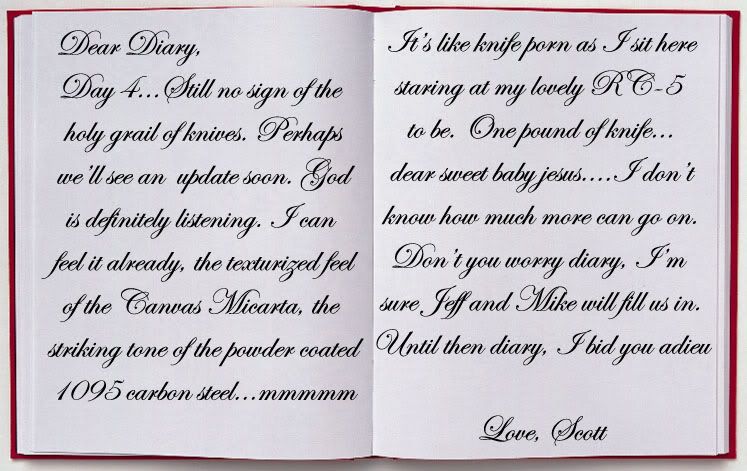 Dear Diary,
Day 4...Still no sign of the
holy grail of knives. Perhaps
we'll see an update soon. God
is definitely listening. I can
feel it already, the texturized feel
of the Canvas Micarta, the
striking tone of the powder coated
1095 carbon steel...mmmmm
It's like knife porn as I sit here
staring at my lovely RC-5
to be. One pound of knife...
dear sweet baby jesus....I don't
know how much more can go on.
Don't you worry diary, I'm
sure Jeff and Mike will fill us in.
Until then diary, I bid you adieu
Love, Scott